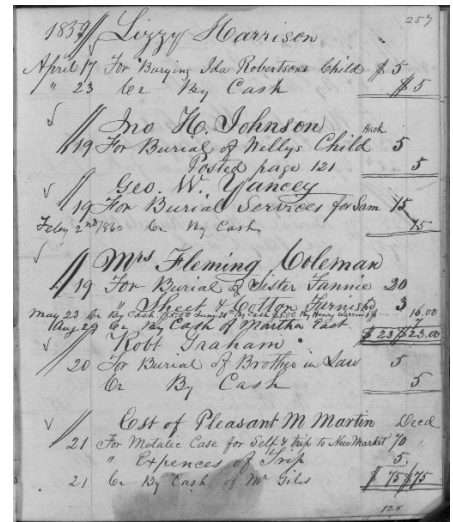 257
1859 Lizzy Harrison
April 17 For Burying Ida Robertsons Child $ 5
" 23 Cr By Cash $ 5
Jno H. Johnson Hack
19 For Burial of Nellys Child 5
Posted page 121 5
Geo. W. Yancey
19 For Burial Services for Sam 15
Feby 2nd 1860 Cr By Cash 15
Mrs Fleming Coleman
19 For Burial of Sister Fannie 20
" Sheet & Cotton Furnishd 3
May 23 Cr By Cash $5.00 By Cash $5.00 By Henry 16.00
Aug 29 Cr By Cash of Martha East $ 23 $23.00
Robt Graham
20 For Burial of Brother in Law 5
Cr By Cash 5
Est of Pleasant M Martin Decd
21 For Metalic Case for Self & trip to New Market 70
" Expences of Trip 5
21 Cr By Cash of Mr Giles $ 75 $75
128